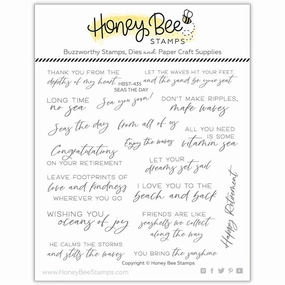 Honey Bee
STAMPS
Buzzworthy Stamps, Dies and Paper Craft Supplies
THANK YOU FROM THE
depths of my heart
HBST-435
SEAS THE DAY
LET THE WAVES HIT YOUR FEET
and the sand be your seat
LONG TIME
no sea
Sea you soon!
DON'T MAKE RIPPLES,
make waves
Seas the day
from all of us
ALL YOU NEED
IS SOME
vitamin sea
Enjoy the waves
Congratulations
ON YOUR RETIREMENT
LET YOUR
dreams set sail
LEAVE FOOTPRINTS OF
love and kindness
WHEREVER YOU GO
I LOVE YOU TO THE
beach and back
Happy Retirement
WISHING YOU
oceans of joy
FRIENDS ARE LIKE
seashells we collect
along the way
HE CALMS THE STORMS
and stills the waves
YOU BRING THE sunshine
Copyright © Honey Bee Stamps
www.HoneyBeeStamps.com